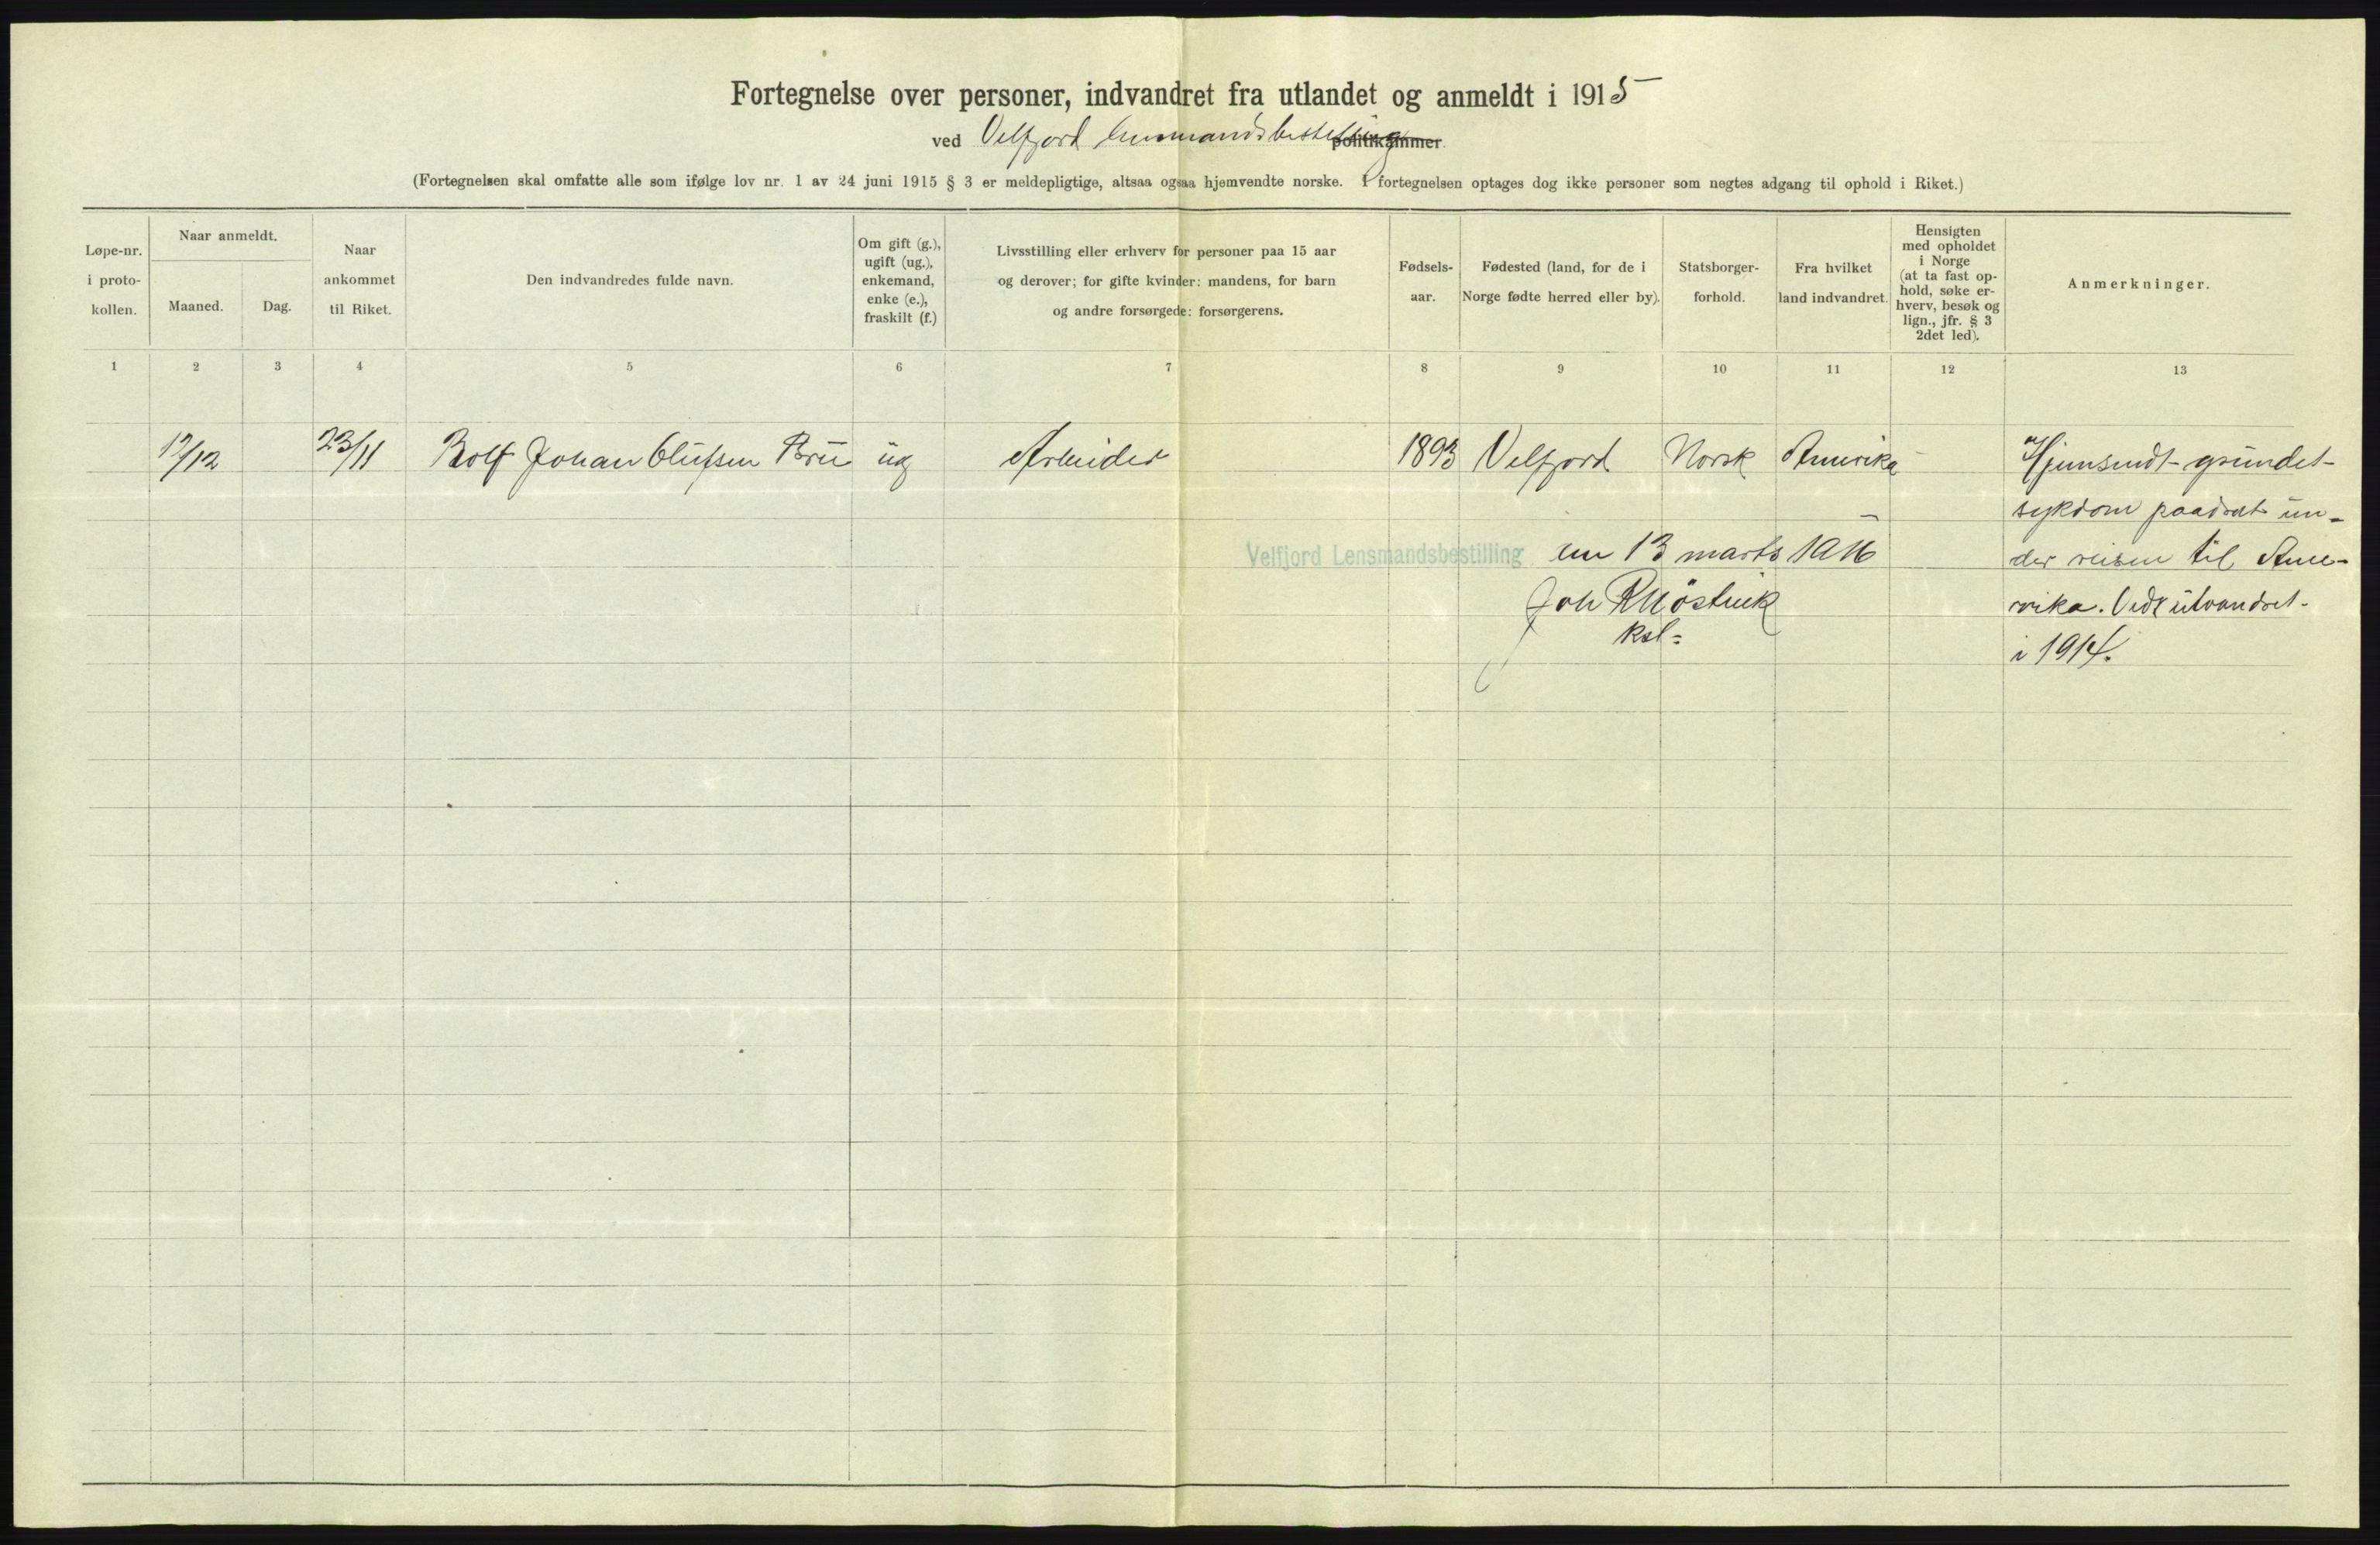 Fortegnelse over personer, indvandret fra utlandet og anmeldt i 1915
ved Velfjord Lensmandsbestilling politikammer.
(Fortegnelsen skal omfatte alle som ifølge lov nr. 1 av 24 juni 1915 § 3 er meldepligtige, altsaa ogsaa hjemvendte norske. I fortegnelsen optages dog ikke personer som negtes adgang til ophold i Riket.)
Løpe-nr.
i proto-
kollen.
Naar anmeldt.
Maaned.
Dag.
Naar
ankommet
til Riket.
Den indvandredes fulde navn.
Om gift (g.),
ugift (ug.),
enkemand,
enke (e.),
fraskilt (f.)
Livsstilling eller erhverv for personer paa 15 aar
og derover; for gifte kvinder: mandens, for barn
og andre forsørgede: forsørgerens.
Fødsels-
aar.
Fødested (land, for de i
Norge fødte herred eller by).
Statsborger-
forhold.
Fra hvilket
land indvandret.
Hensigten
med opholdet
i Norge
(at ta fast op-
hold, søke er-
hverv, besøk og
lign., jfr. § 3
2det led).
Anmerkninger.
1 2 3 4 5 6 7 8 9 10 11 12 13
17/12 23/11 Rolf Johan Olufsen Bru ug Arbeider 1893 Velfjord Norsk Amerika - Hjemsendt grundet
sykdom paadrat un-
Velfjord Lensmandsbestilling den 13 marts 1916
der reisen til Ame-
Joh
rika. utvandret
i 1914.